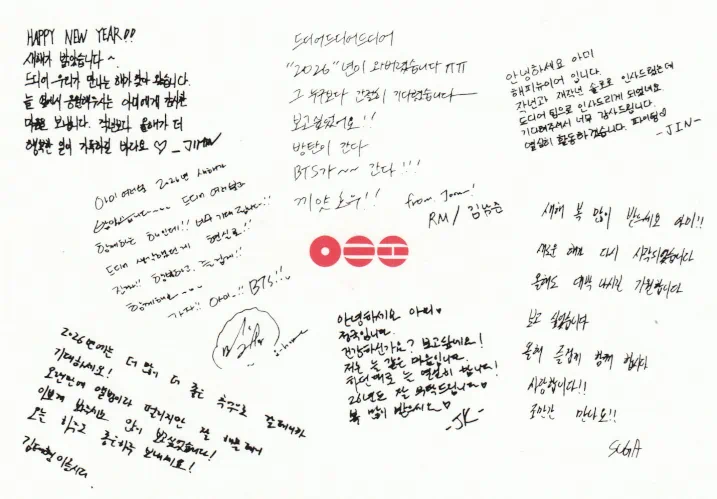 HAPPY NEW YEAR!!
새해가 밝았습니다~
드디어 우리가 만나는 해가 찾아 왔습니다.
늘 옆에서 응원해주는 아미에게 감사한
마음을 보냅니다. 작년보다 올해가 더
행복한 일이 가득하길 바라요 ♡ _Jimin
드디어드디어드디어
"2026"년이 와버렸습니다 ㅠㅠ
그 누구보다 간절히 기다렸습니다
보고싶었어요!!
방탄이 간다
BTS가~~ 간다!!!
끼얏호우!!
from. Joon!
RM / 김남준
안녕하세요 아미
해피뉴이어 입니다.
작년과 재작년 솔로로 인사드렸는데
드디어 팀으로 인사드리게 되었네요
기다려주셔서 너무 감사드립니다.
열심히 활동하겠습니다. 파이팅♡
-JIN-
아미 여러분 2026년 새해가
밝았습니다~~~ 드디어 여러분과
함께하는 해인데!! 너무 기대됩니다!!
드디어 생각했던게 현실로!!
함께해요~~
가자!! 아미!! BTS!!
j-hope
새해 복 많이 받으세요 아미!!
새로운 해가 다시 시작되었습니다
올해도 대박 나시길 기원합니다
보고 싶었습니다
올해 즐겁게 함께 합시다
사랑합니다!!
조만간 만나요!!
SUGA
2026년에는 더 많고 더 좋은 추억으로 갈테니까
기대하세요!
오랜만에 앨범이라 떨리지만 잘 해볼테니
이쁘게 봐주시고 많이 보고싶었습니다!
오늘 하루도 좋은하루 보내세요!
김태형 이었습니다
안녕하세요 아미♡
정국입니다.
건강하신가요? 보고싶네요!
저는 늘 같은 마음입니다.
하던대로 늘 열심히 합니다!
26년도 잘 부탁드립니다♡
복 많이 받으세요♡
-JK-